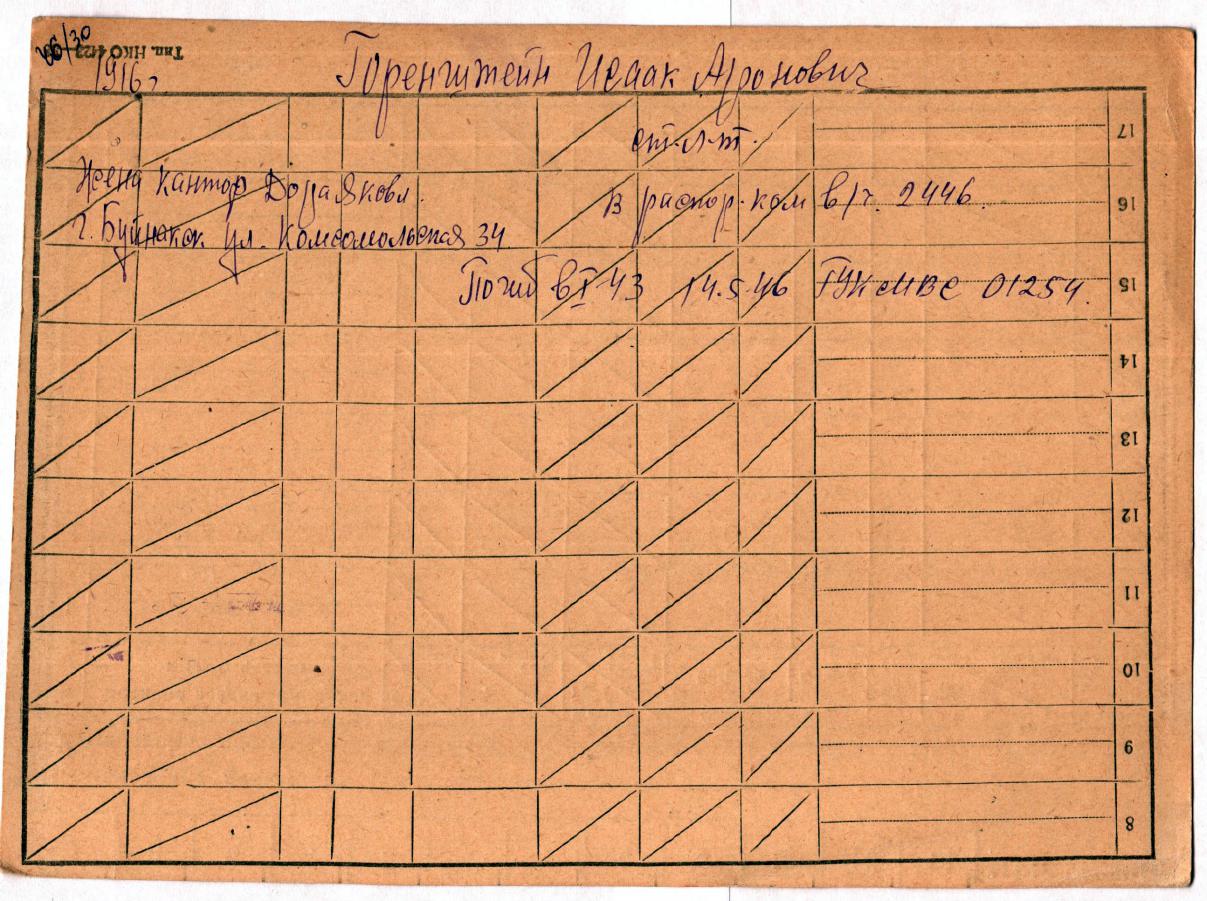 Тип. НКО 4123
1916 г. Горенштейн Исаак Аронович
17
ст. л-т.
Жена Кантор Дора Яковл.
16
в распор. ком в/ч. 2446.
г. Буйнакск ул. Комсомольская 34
15
Погиб в I 43 14.5.46 ГУК МВС 01254.
14
13
12
11
10
9
8